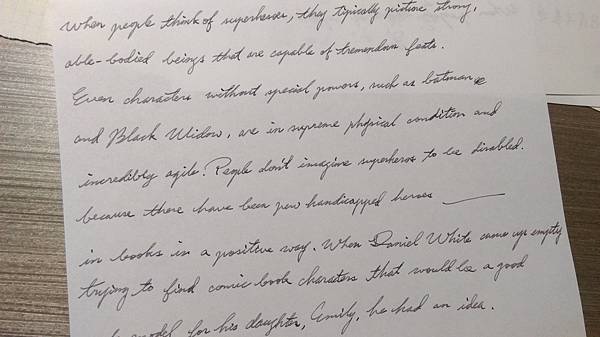 When people think of superheroes, they typically picture strong,
able-bodied beings that are capable of tremendous feats.
Even characters without special powers, such as batman
and Black Widow, are in supreme physical condition and
incredibly agile. People don't imagine superheros to be disabled.
because there have been few handicapped heroes
in books in a positive way. When Daniel White came up empty
trying to find comic book characters that would be a good
model for his daughter, Emily, he had an idea.